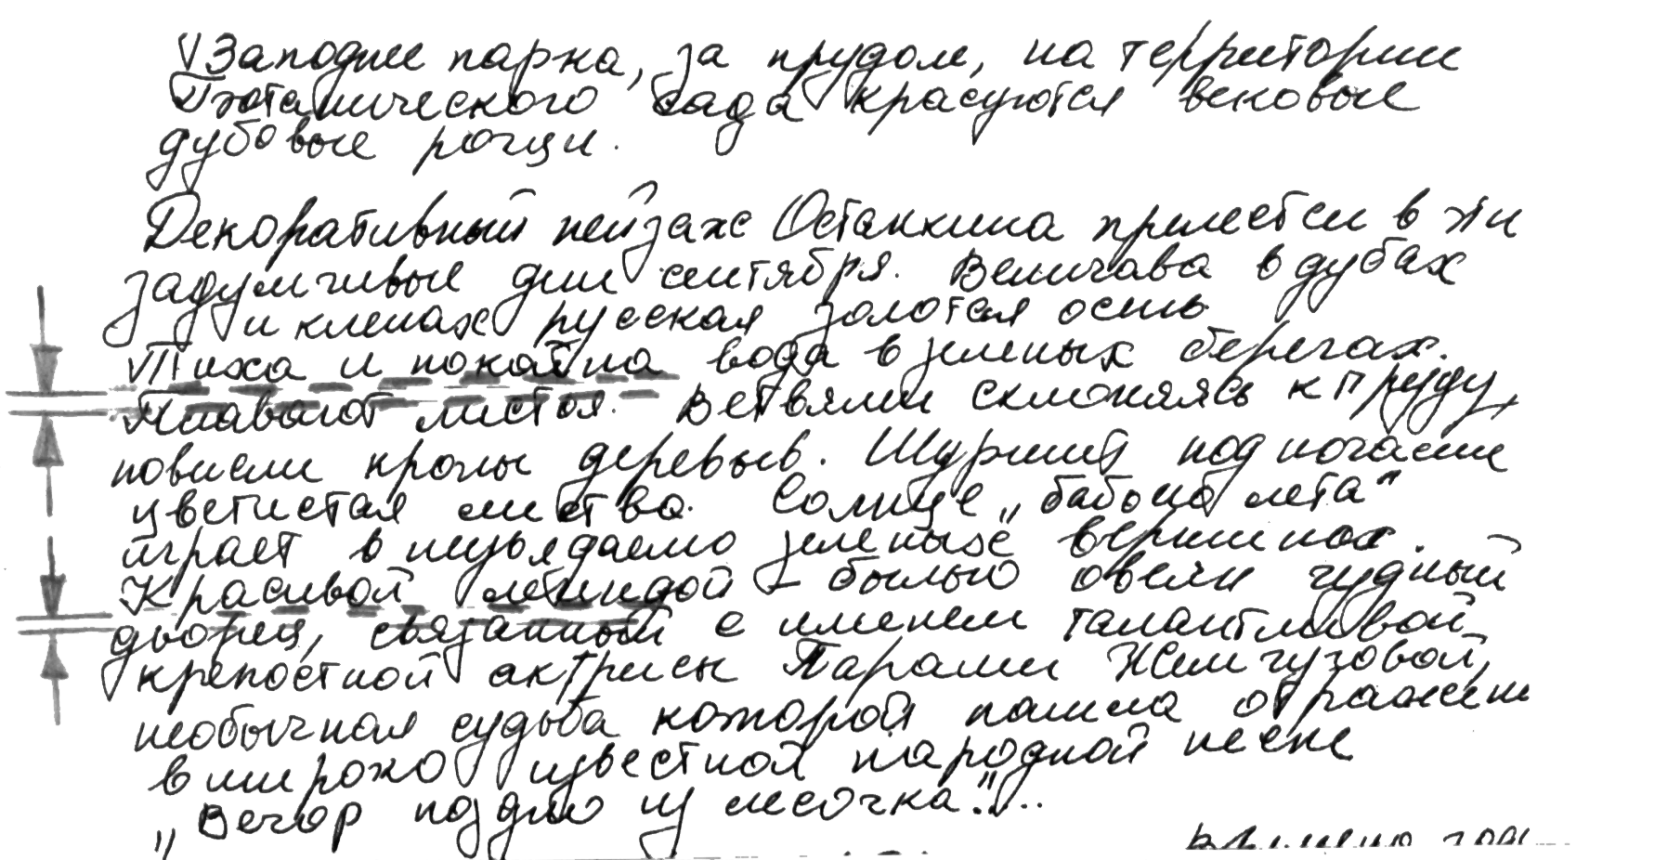 Западнее парка, за прудом, на территории
Ботанического сада красуются вековые
дубовые рощи.
Декоративный пейзаж Останкина прелестен в эти
задумчивые дни сентября. Величава в дубах
и кленах русская золотая осень
Тиха и покойна вода в зеленых берегах.
Плавают листья. Ветвями склоняясь к пруду,
повисли кроны деревьев. Шуршит под ногами
цветистая листва. Солнце „бабьего лета“
играет в неувядаемо зеленых вершинах.
Красивой легендой – былью овеян чудный
дворец, связанный с именем талантливой
крепостной актрисы Параши Жемчуговой,
необычная судьба которой нашла отражение
в широко известной народной песне
„Вечор поздно из лесочка“...